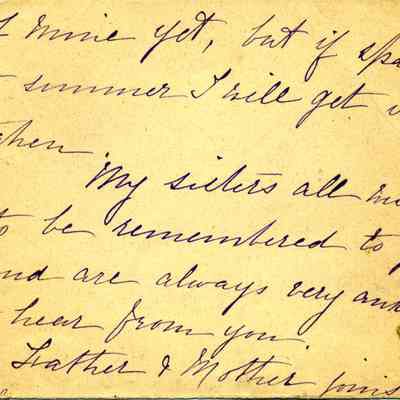 mine yet, but if spa
summer I will get
then
My sisters all
to be remembered to
and are always very anx
hear from you
Father & Mother joins